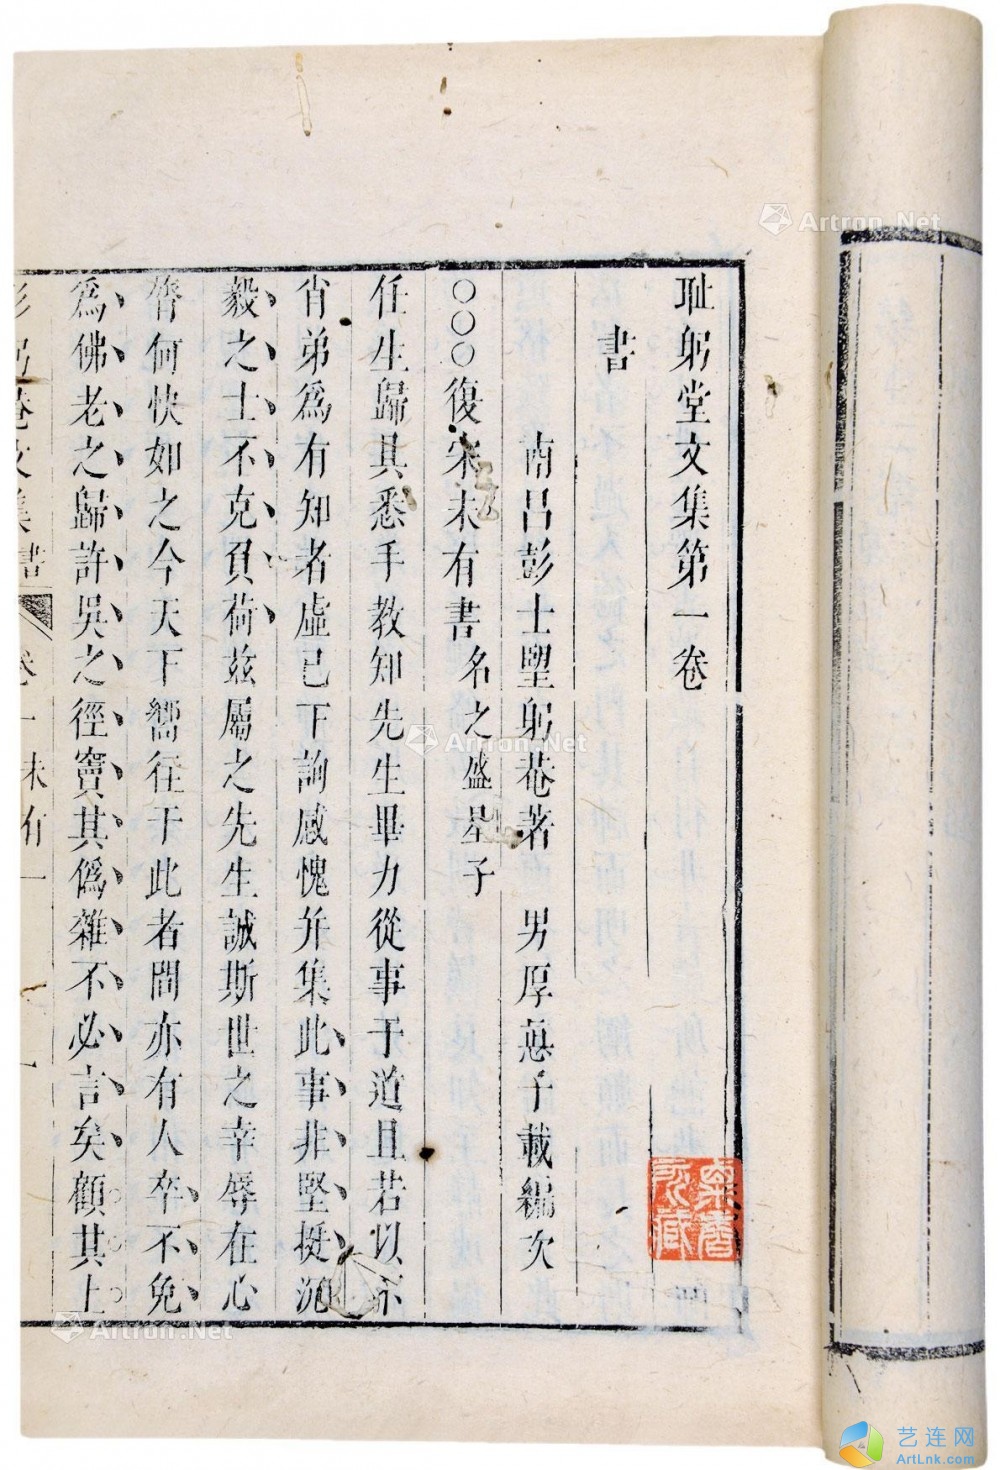 耻躬堂文集第一卷
書
南昌彭士望躬菴著 男厚惪子載編次
○○○復宋未有書 名之盛星子
任生歸其悉手教知先生畢力從事于道且若以不
肖弟為有知者虛己下詢感愧并集此事非堅挺沉
毅之士不克負荷兹屬之先生誠斯世之幸辱在心
膂何快如之今天下嚮往于此者間亦有人卒不免
為佛老之歸許吳之徑竇其僞雜不必言矣顧其上
彭躬菴文集 書 卷一 未有一
所藏
Artron.Net
Artron.Net
Artron.Net
艺连网
ArtLnk.com